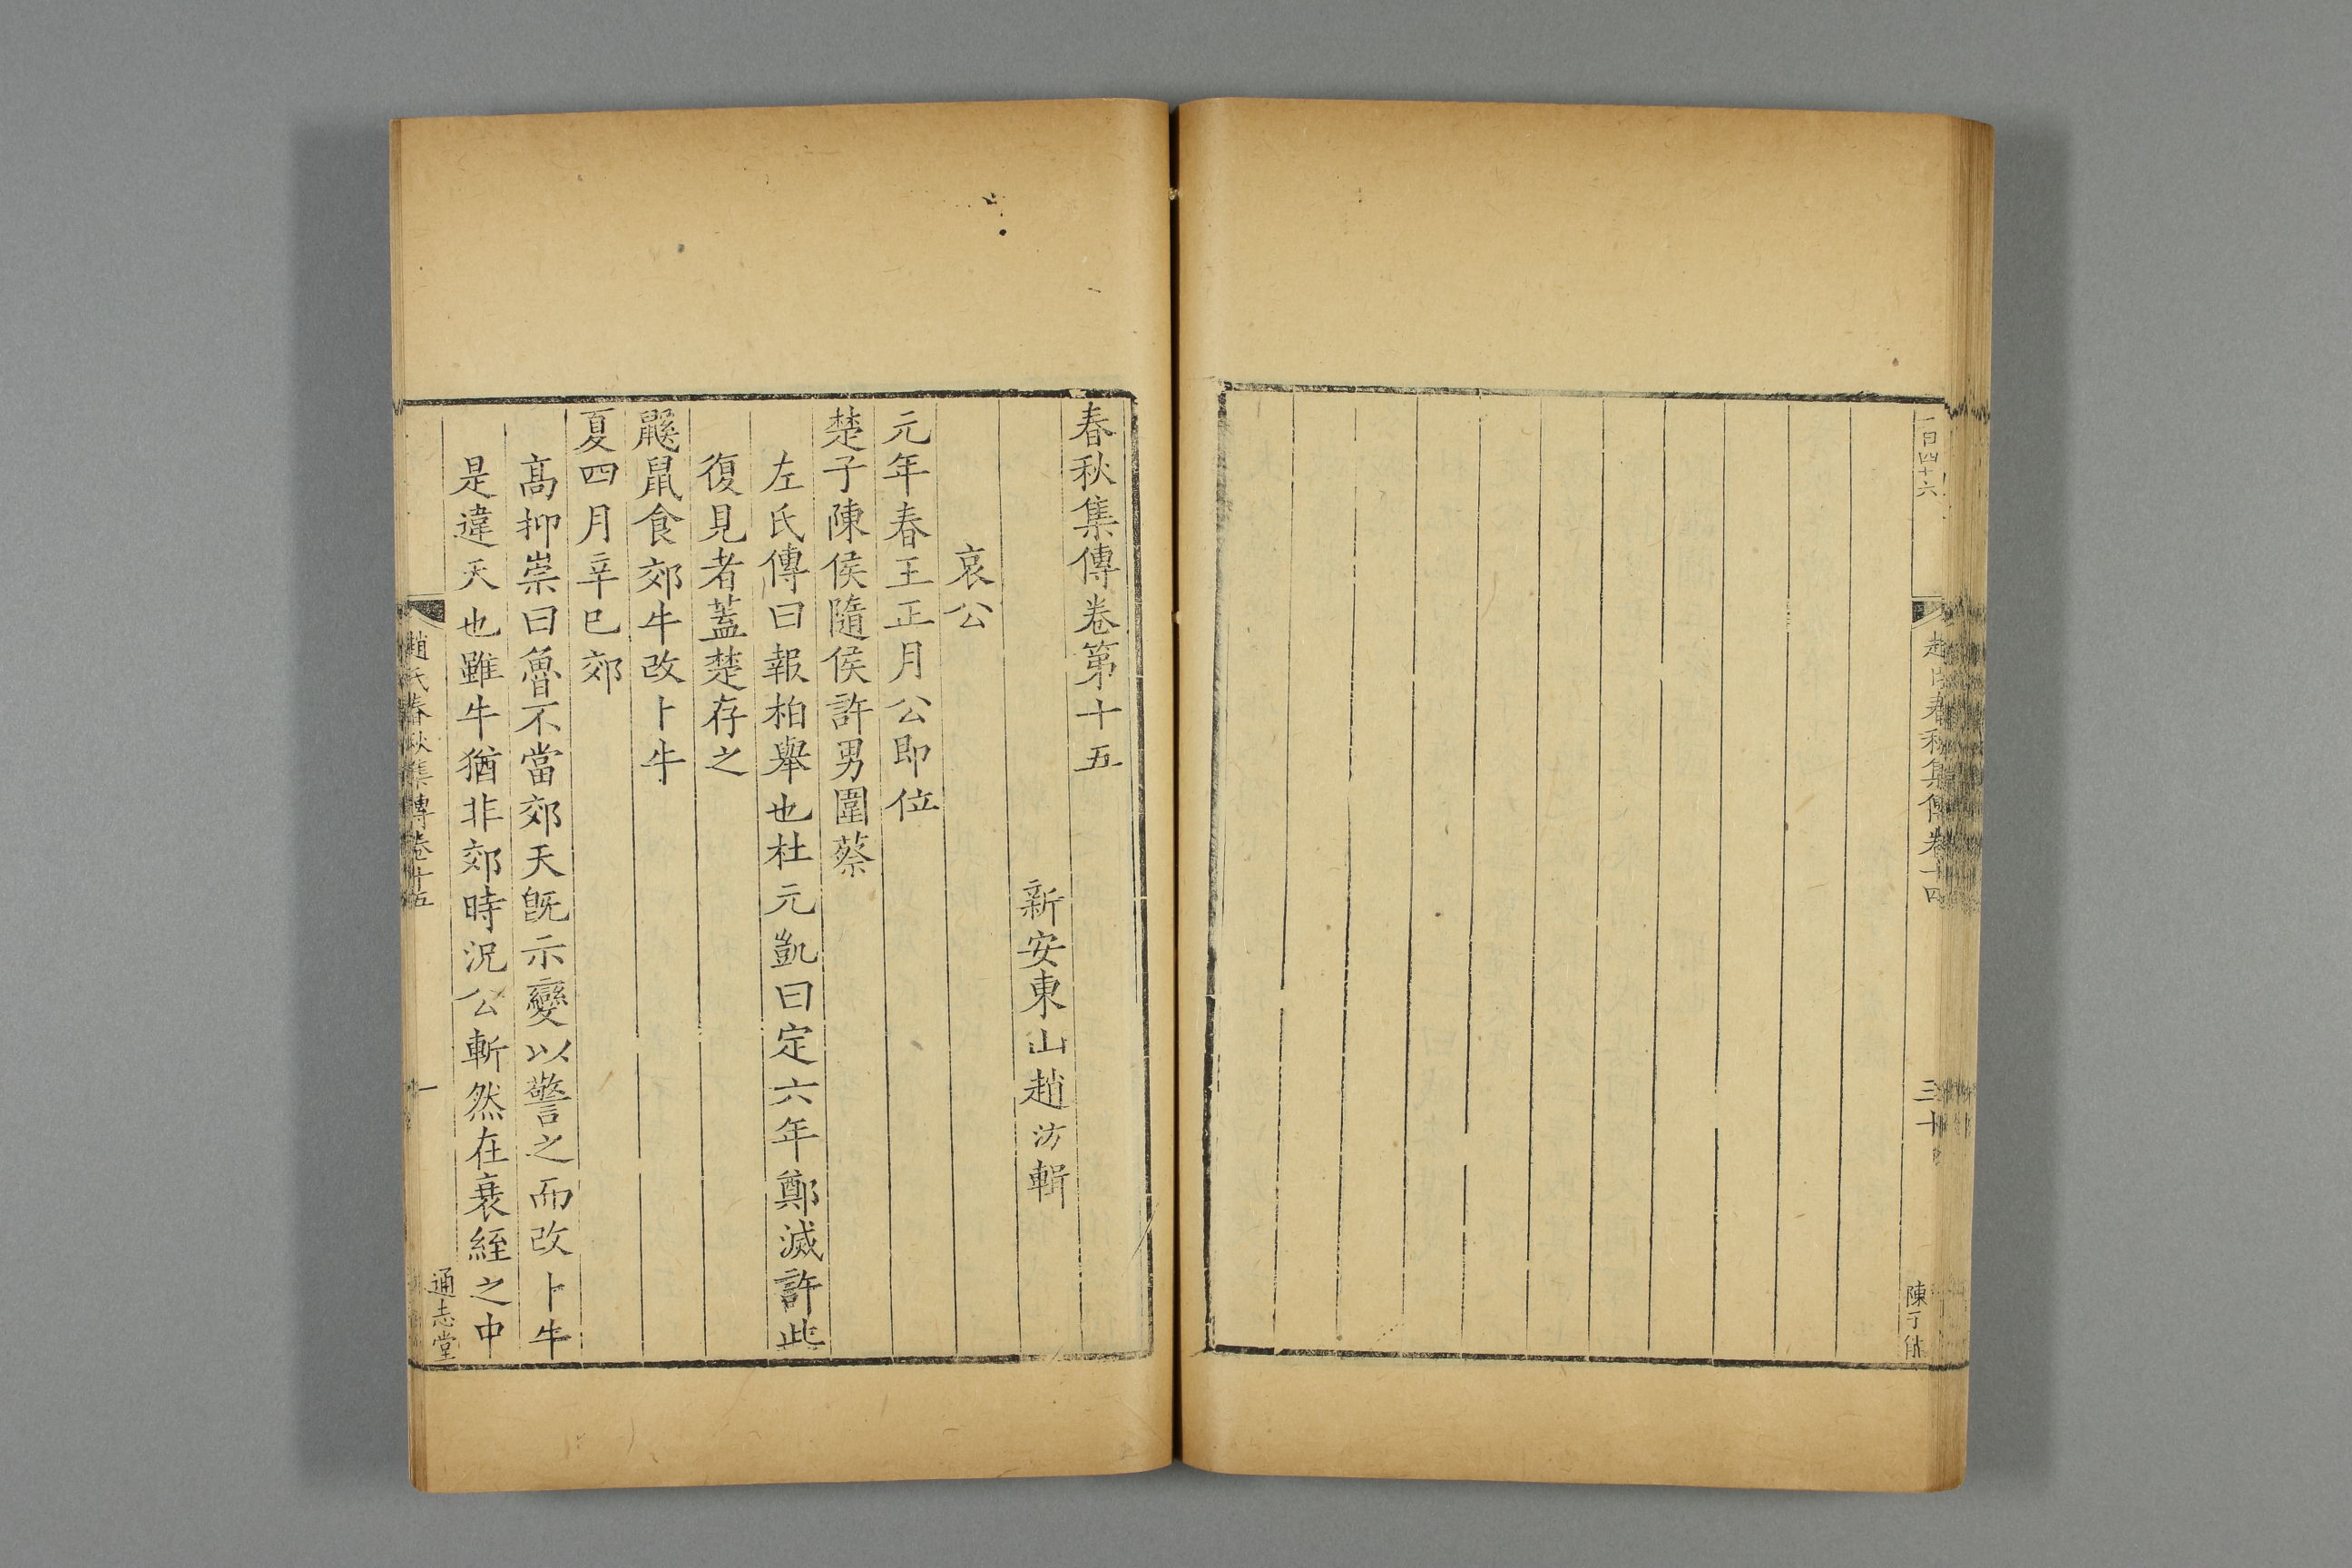 一百四十六
趙氏春秋集傳卷十四
三十
春秋集傳卷第十五
新安東山趙汸輯
哀公
元年春王正月公即位
楚子陳侯隨侯許男圍蔡
左氏傳曰報柏舉也杜元凱曰定六年鄭滅許此
復見者蓋楚存之
鼷鼠食郊牛改卜牛
夏四月辛巳郊
高抑崇曰魯不當郊天旣示變以警之而改卜牛
是違天也雖牛猶非郊時況公斬然在衰絰之中
趙氏春秋集傳卷十五
一
通志堂